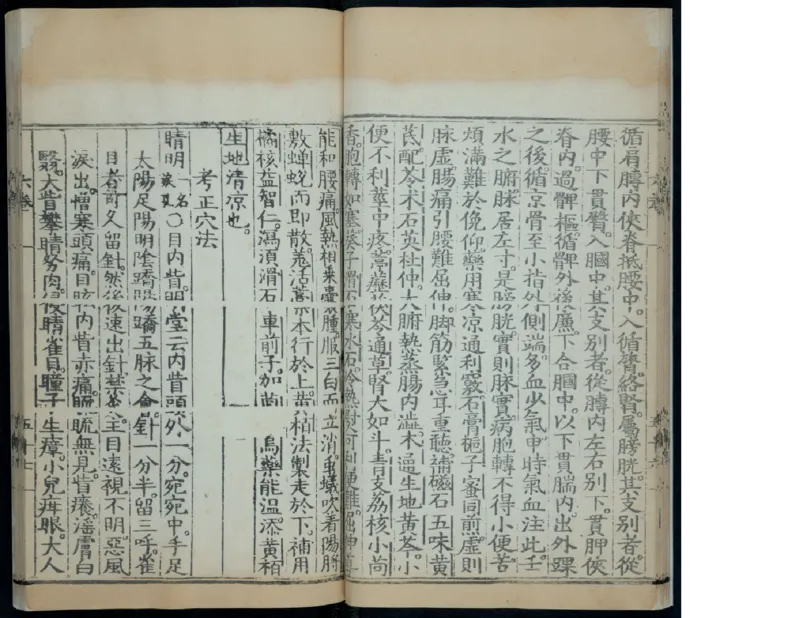 循肩膊內俠脊抵腰中入循膂絡腎屬膀胱其支別者從
腰中下貫臀入膕中其支別者從膊內左右別下貫胛俠
脊內過髀樞循髀外後廉下合膕中以下貫腨內出外踝
之後循京骨至小指外側端多血少氣申時氣血注此壬
水之腑脉居左寸是膀胱實則脉實病胞轉不得小便苦
煩滿難於俛仰藥用寒凉通利竅石膏梔子蜜同煎虛則
脉虛腸痛引腰難屈伸脚筋緊急耳重聽補磁石五味黃
芪配苓朮石英杜仲大腑熱蒸腸內澁木通生地黃芩小
便不利葶中疼茯苓通草腎大如斗青支荔核小茴
香胞轉如塞葵子滑石寒水石
能和腰痛風熱相乗囊腫服三白而立消虫蟻吹着陽脬
敷蟬蛻而即散羗活本行於上黃栢法製走於下補用
橘核益智仁瀉須滑石車前子加茴烏藥能温添黃栢
生地清凉也
考正穴法
睛明一名淚孔〇目內眥明堂云內眥頭外一分宛宛中手足
太陽足陽明陰蹻陽蹻五脉之會針一分半留三呼雀
目者可久留針然後速出針禁灸主目遠視不明惡風
淚出憎寒頭痛目眩內眥赤痛䀮䀮無見眥癢淫膚白
翳大眥攀睛努肉侵睛雀目瞳子生瘴小兒疳眼大人
六卷
五十七